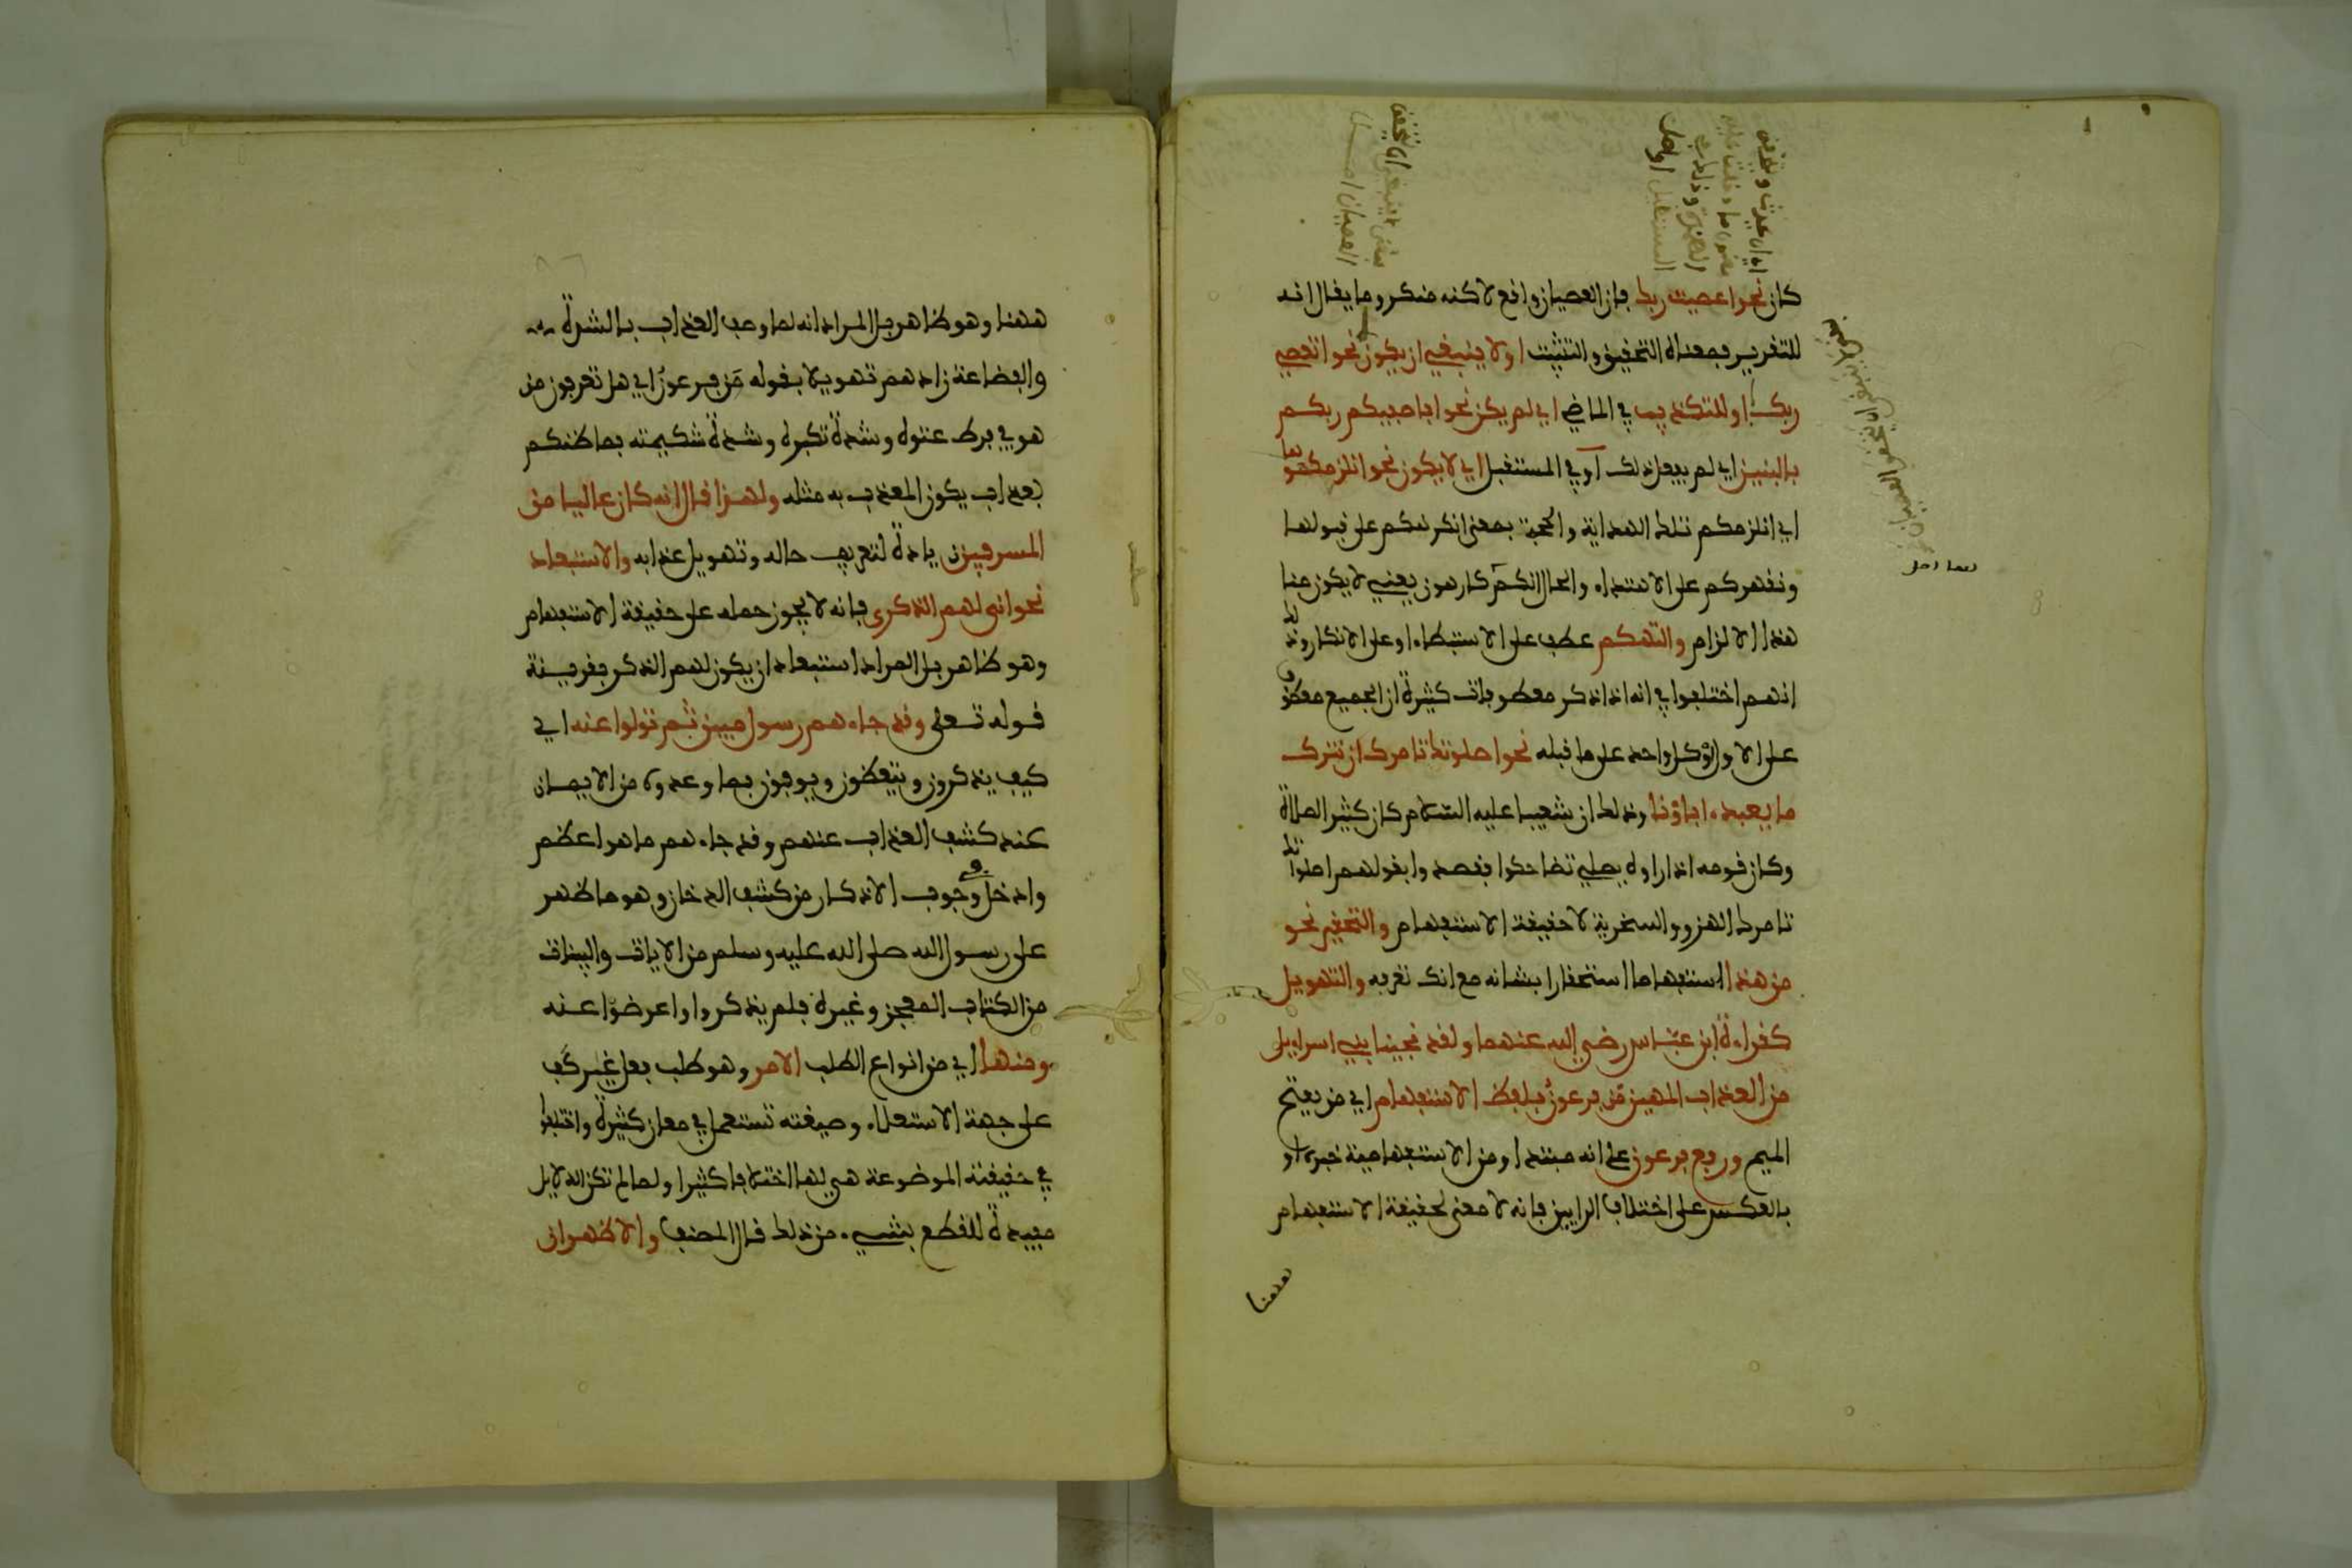 كان نحو اعصيت ربك فإن العصيان واقع لاكنه منكر وما يقال انه
للتقرير فمعناه التحقيق والتثبت او لا ينبغي ان يكون نحو اتعصي
ربك او للتكذيب في الماضي اي لم يكن نحو افاصفيكم ربكم
بالبنين اي لم يفعل ذلك او في المستقبل اي لا يكون نحو انلزمكموها
اي انلزمكم تلك الهداية والحجة بمعنى انكرهكم على قبولها
ونقهركم على الاهتداء والحال انكم كارهون يعني لا يكون منا
هذا الالزام والتهكم عطف على الاستبطاء او على الانكار وذلك
انهم اختلفوا في انه اذا ذكر معطوفات كثيرة ان الجميع معطوف
على الاول او كل واحد على ما قبله نحو اصلوتك تامرك ان نترك
ما يعبد اباؤنا وذلك ان شعيبا عليه السلام كان كثير الصلاة
وكان قومه اذا راوه يصلي تضاحكوا فقصدوا بقولهم اصلواتك
تامرك الهزو والسخرية لا حقيقة الاستفهام والتحقير نحو
من هذا استفهاما استحقارا بشانه مع انك تعرفه والتهويل
كقراءة ابن عباس رضي الله عنهما ولقد نجينا بني اسراءيل
من العذاب المهين من فرعون بلفظ الاستفهام اي من بفتح
الميم ورفع فرعون على انه مبتدا ومن الاستفهامية خبره او
بالعكس على اختلاف الرايين فانه لا معنى لحقيقة الاستفهام
ههنا
ههنا وهو ظاهر بل المراد انه لما وصف العذاب بالشدة
والفضاعة زادهم تهويلا بقوله من فرعون اي هل تعرفون من
هو في فرط عتوه وشدة تكبره وشدة شكيمته فما ظنكم
بعذاب يكون المعذب به مثله ولهذا قال انه كان عاليا من
المسرفين زيادة لتعريف حاله وتهويل عذابه والاستبعاد
نحو انى لهم الذكرى فانه لا يجوز حمله على حقيقة الاستفهام
وهو ظاهر بل المراد استبعاد ان يكون لهم الذكر بقرينة
قوله تعلى وقد جاءهم رسول مبين ثم تولوا عنه اي
كيف يذكرون ويتعظون ويوفون بما وعدوه من الايمان
عند كشف العذاب عنهم وقد جاءهم ما هو اعظم
وادخل في وجوب الاذكار من كشف الدخان وهو ما ظهر
على رسول الله صلى الله عليه وسلم من الايات والبينات
من الكتاب المعجز وغيره فلم يذكروا واعرضوا عنه
ومنها اي من انواع الطلب الامر وهو طلب فعل غير كف
على جهة الاستعلاء وصيغته تستعمل في معان كثيرة واختلفوا
في حقيقته الموضوعة هي لها اختلافا كثيرا ولما لم تكن الدلايل
مفيدة للقطع بشيء من ذلك قال المصنف والاظهر ان